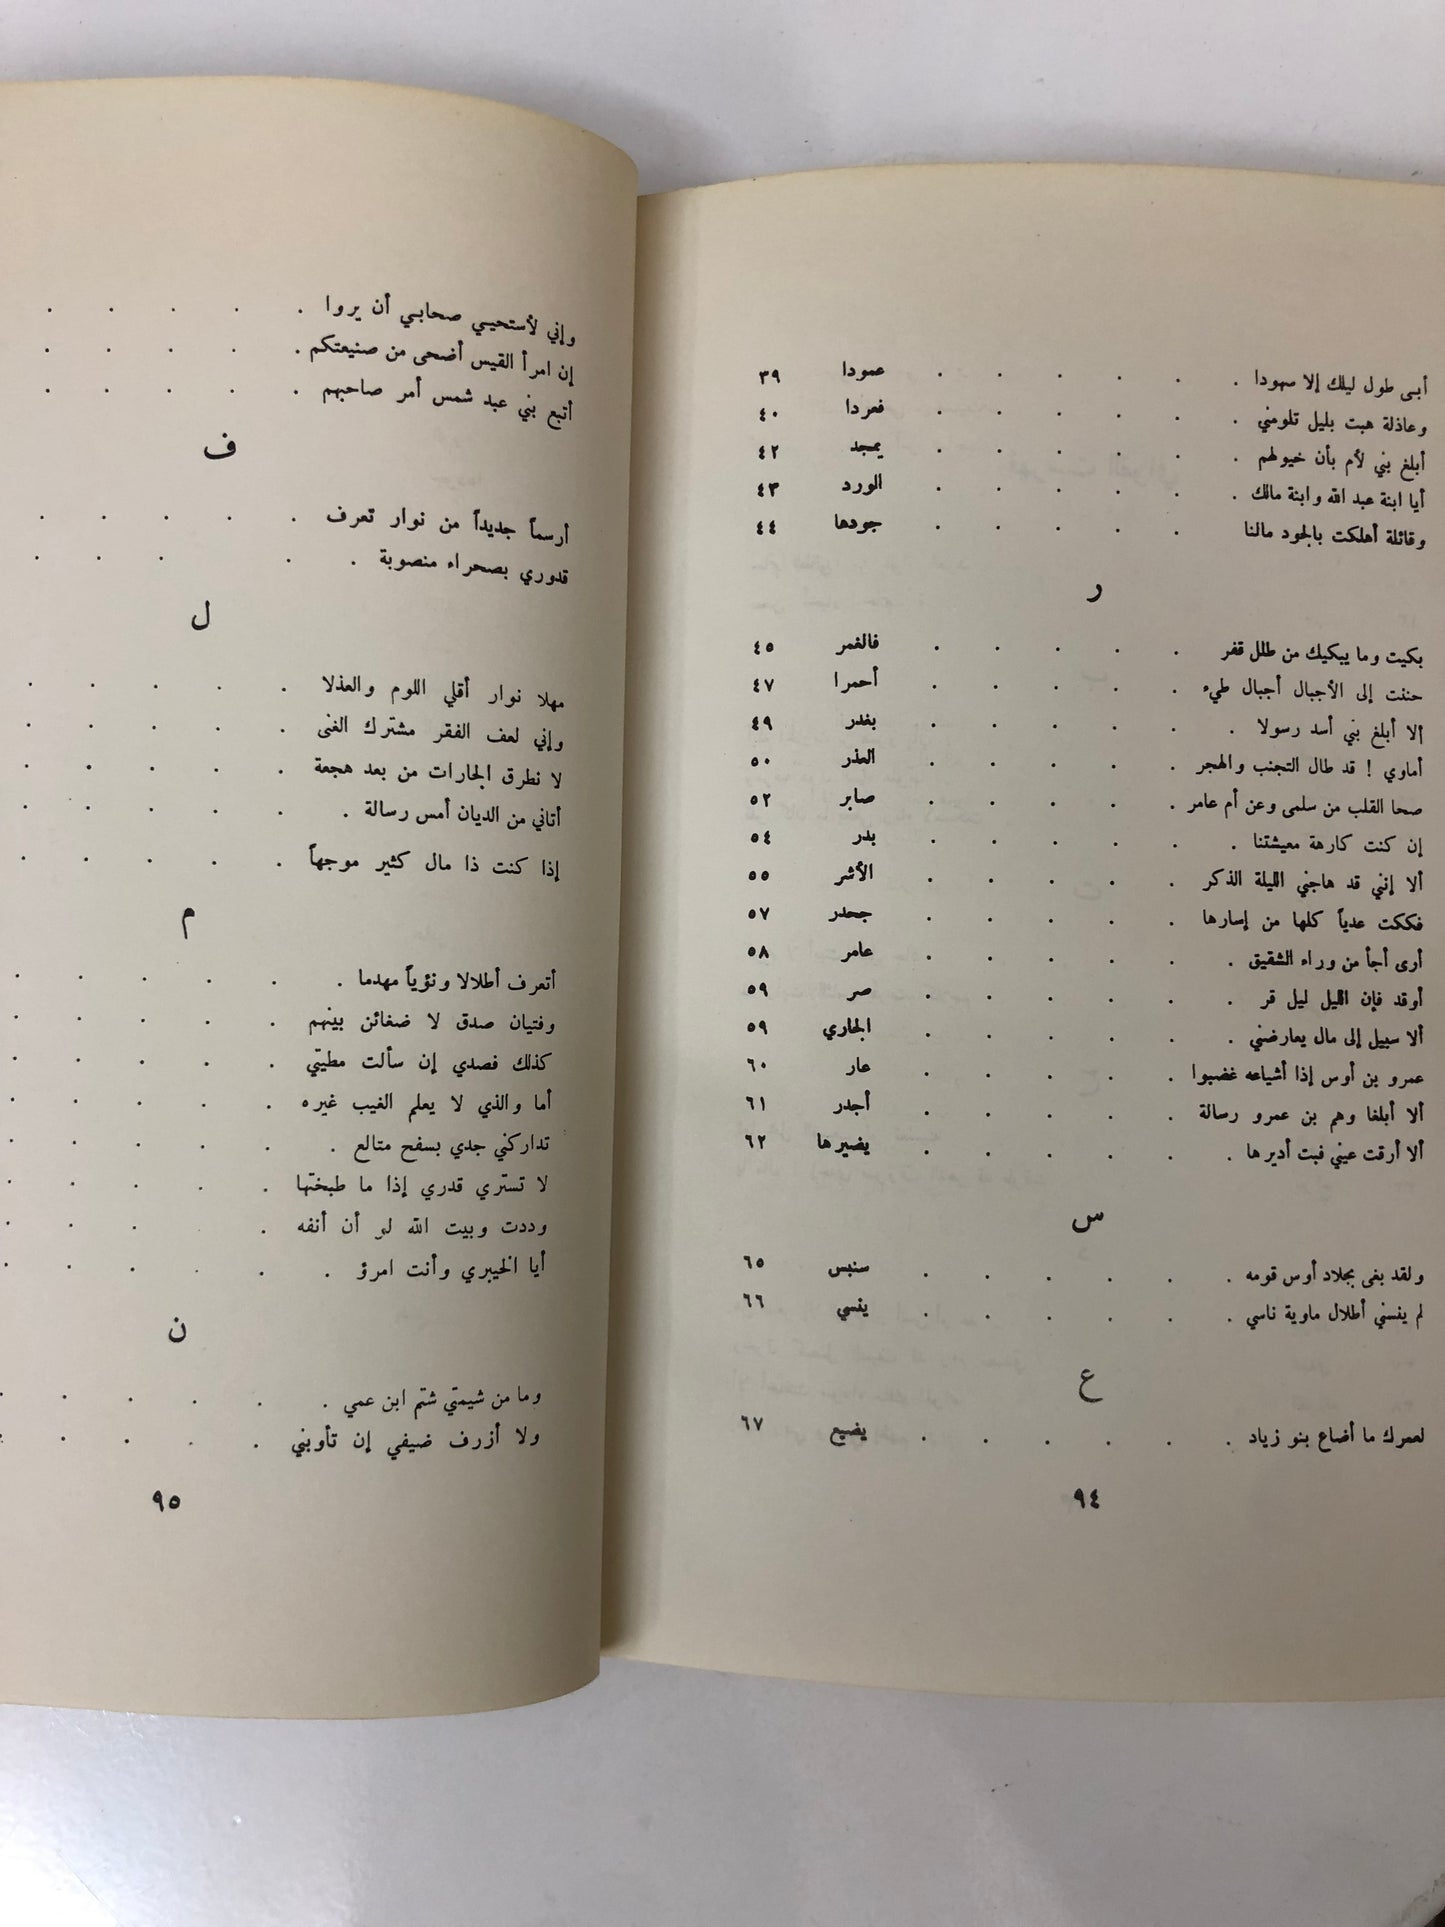 أبى طول ليلك إلا سهودا . . . . . . عمودا ٣٩
وعاذلة هبت بليل تلومني . . . . . . فعردا ٤٠
أبلغ بني لأم بأن خيولهم . . . . . . يمجد ٤٢
أيا ابنة عبد الله وابنة مالك . . . . . . الورد ٤٣
وقائلة أهلكت بالجود مالنا . . . . . جودها ٤٤
ر
بكيت وما يبكيك من طلل قفر . . . . . فالغمر ٤٥
حننت إلى الأجبال أجبال طيء . . . . . أحمرا ٤٧
ألا أبلغ بني أسد رسولا . . . . . . بغدر ٤٩
أماوي ! قد طال التجنب والهجر . . . . . العذر ٥٠
صحا القلب من سلمى وعن أم عامر . . . . . صابر ٥٢
إن كنت كارهة معيشتنا . . . . . . بدر ٥٤
ألا إنني قد هاجني الليلة الذكر . . . . . الأشر ٥٥
فككت عدياً كلها من إسارها . . . . . جحدر ٥٧
أرى أجأ من وراء الشقيق . . . . . . عامر ٥٨
أوقد فإن الليل ليل قر . . . . . . صر ٥٩
ألا سبيل إلى مال يعارضني . . . . . . الجاري ٥٩
عمرو بن أوس إذا أشياعه غضبوا . . . . . عار ٦٠
ألا أبلغا وهم بن عمرو رسالة . . . . . أجدر ٦١
ألا أرقت عيني فبت أديرها . . . . . . يضيرها ٦٢
س
ولقد بغى بجلاد أوس قومه . . . . . . سنبس ٦٥
لم ينسني أطلال ماوية ناسي . . . . . . ينسي ٦٦
ع
لعمرك ما أضاع بنو زياد . . . . . . يضيع ٦٧
٩٤
وإني لأستحيي صحابي أن يروا . . . . .
إن امرأ القيس أضحى من صنيعتكم . . . . .
أتبع بني عبد شمس أمر صاحبهم . . . . .
ف
أرسماً جديداً من نوار تعرف . . . . .
قدوري بصحراء منصوبة . . . . . .
ل
مهلا نوار أقلي اللوم والعذلا . . . . .
وإني لعف الفقر مشترك الغنى . . . . .
لا نطرق الجارات من بعد هجعة . . . . .
أتاني من الديان أمس رسالة . . . . . .
إذا كنت ذا مال كثير موجهاً . . . . .
م
أتعرف أطلالا ونؤياً مهدما . . . . . .
وفتيان صدق لا ضغائن بينهم . . . . .
كذلك فصدي إن سألت مطيتي . . . . .
أما والذي لا يعلم الغيب غيره . . . . .
تداركني جدي بسفح متالع . . . . . .
لا تستري قدري إذا ما طبختها . . . . .
وددت وبيت الله لو أن أنفه . . . . .
أيا الخيبري وأنت امرؤ . . . . . .
ن
وما من شيمتي شتم ابن عمي . . . . . .
ولا أزرف ضيفي إن تأوبني . . . . .
٩٥